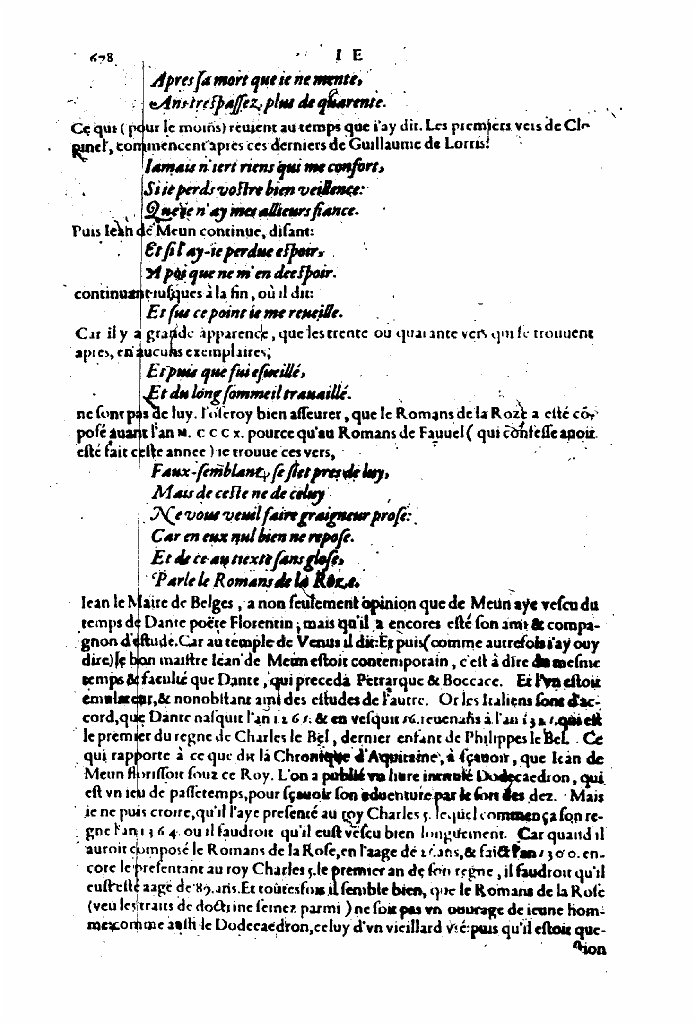 678 I E
Apres sa mort que ie ne mente,
Ans trespassez, plus de quarente.
Ce qui (pour le moins) reuient au temps que i'ay dit. Les premiers vers de Clo-
pinel, commencent apres ces derniers de Guillaume de Lorris:
Iamais n'iert riens qui me confort,
Si ie perds vostre bien veillence:
Que ie n'ay mes allieurs fiance.
Puis Iean de Meun continue, disant:
Et si l'ay-ie perdue espoir,
A poi que ne m'en deespoir.
continuant iusques à la fin, où il dit:
Et sus ce point ie me reueille.
Car il y a grande apparence, que les trente ou quarante vers qui se trouuent
apres, en aucuns exemplaires,
Et puis que fui esueillé,
Et du long sommeil trauaillé.
ne sont pas de luy. I'oseroy bien asseurer, que le Romans de la Roze a esté cõ-
posé auant l'an M. C C C X. pource qu'au Romans de Fauuel (qui confesse auoir
esté fait ceste annee) ie trouue ces vers,
Faux-semblant, se siet pres de luy,
Mais de ceste ne de celuy
Ne vous veuil faire graigneur prose:
Car en eux nul bien ne repose.
Et de ce au texte sans glose,
Parle le Romans de la Roze.
Iean le Maire de Belges, a non seulement opinion que de Meun aye vescu du
temps de Dante poëte Florentin, mais qu'il a encores esté son ami & compa-
gnon d'estude. Car au temple de Venus il dit: Et puis (comme autresfois i'ay ouy
dire) le bon maistre Iean de Meun estoit contemporain, c'est à dire du mesme
temps & faculté que Dante, qui preceda Petrarque & Boccace. Et l'vn estoit
emulateur, & nonobstant ami des estudes de l'autre. Or les Italiens sont d'ac-
cord, que Dante nasquit l'an 1265. & en vesquit 56. reuenans à l'an 1321. qui est
le premier du regne de Charles le Bel, dernier enfant de Philippes le Bel. Ce
qui rapporte à ce que dit là Chronique d'Aquitaine, à sçauoir, que Iean de
Meun florissoit souz ce Roy. L'on a publié vn liure intitulé Dodecaedron, qui
est vn ieu de passetemps, pour sçauoir son aduenture par le sort des dez. Mais
ie ne puis croire, qu'il l'aye presenté au roy Charles 5. lequel commença son re-
gne l'an 1364. ou il faudroit qu'il eust vescu bien longuement. Car quand il
auroit composé le Romans de la Rose, en l'aage de ans, & fait l'an 1300. en-
core le presentant au roy Charles 5. le premier an de son regne, il faudroit qu'il
eust esté aagé de 89. ans. Et toutesfois il semble bien, que le Romans de la Rose
(veu les traits de doctrine semez parmi) ne soit pas vn ouurage de ieune hom-
me: comme aussi le Dodecaedron, celuy d'vn vieillard vsé: puis qu'il estoit que-
stion